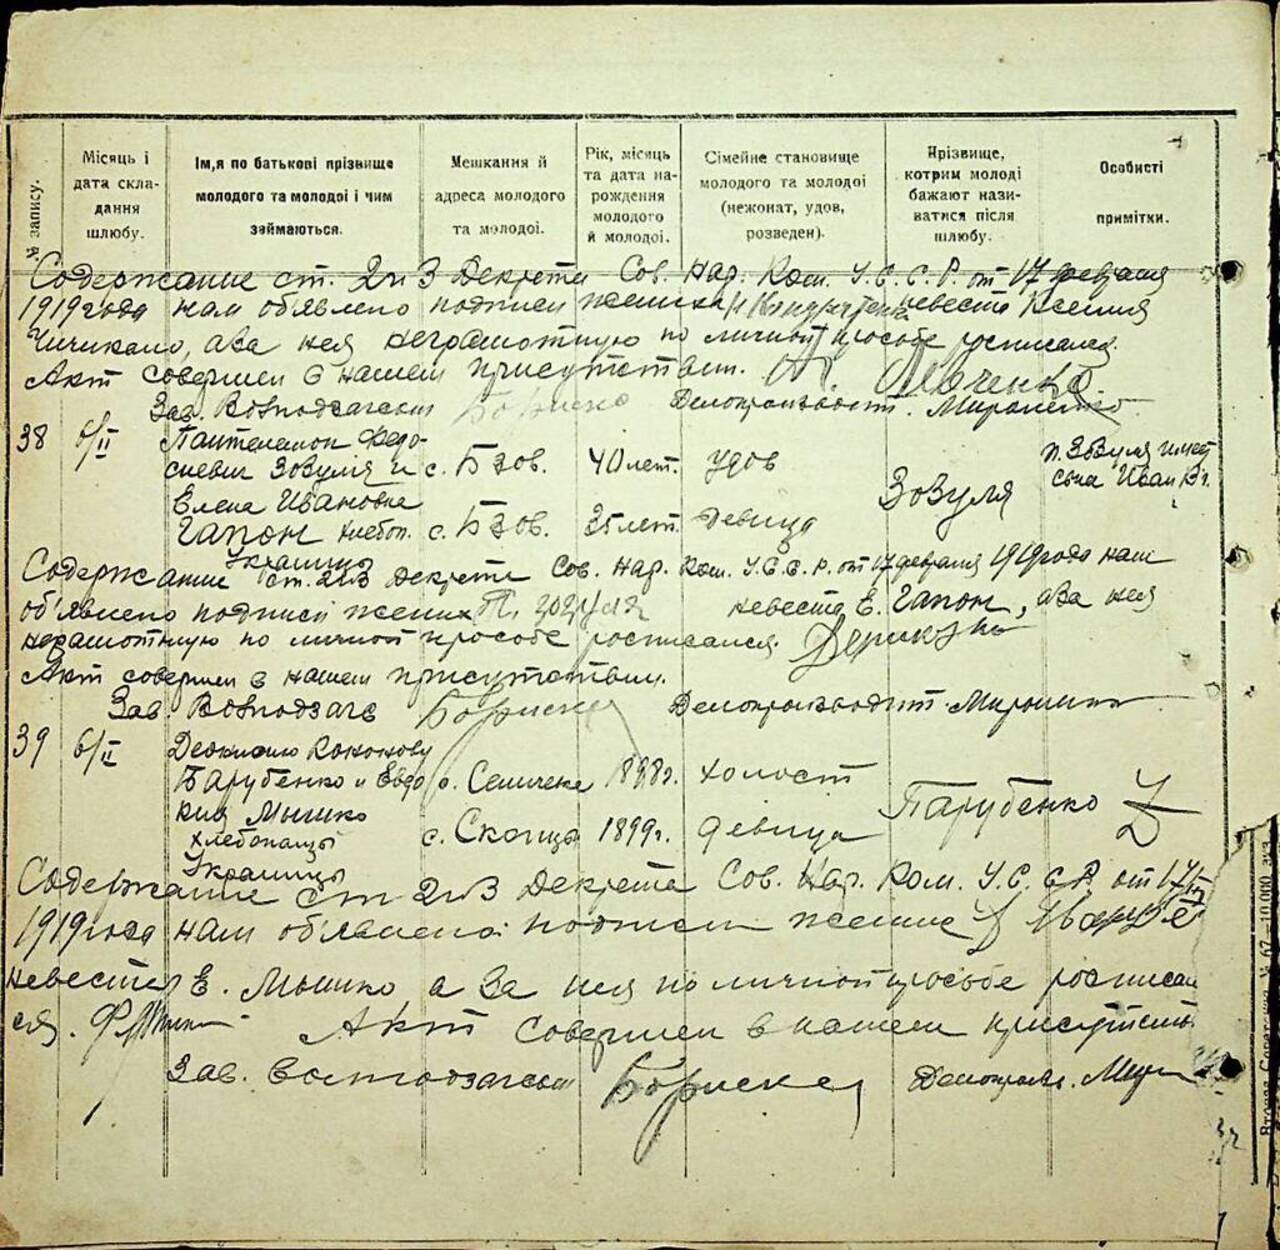 № запису.
Місяць і дата скла- дання шлюбу.
Ім,я по батькові прізвище молодого та молодоі і чим займаються.
Мешкання й адреса молодого та молодоі.
Рік, місяць та дата на- рождення молодого й молодоі.
Сімейне становище молодого та молодоі (нежонат, удов, розведен).
Прізвище, котрим молоді бажают нази- ватися після шлюбу.
Особисті примітки.
Содержание ст. 2 и 3 Декрета Сов. Нар. Ком. У.С.С.Р. от 17 февраля
1919 года нам об'явлено подписи жениха невеста Ксения
Чичикало, а за нея неграмотную по личной просьбе росписался.
Акт совершен в нашем присутствии.
Зав. Волподзагсом Бориско Делопроизводит. Мироненко
38 6/II Пантелемон Федо-
сиевич Зозуля и с. Бзов. 40 лет. удов Зозуля п. Зозуля имеет
сына Иван
Елена Ивановна
Гапон хлебоп. с. Бзов. 25 лет. девица
Украинцы
Содержание ст. 2 и 3 Декрета Сов. Нар. Ком. У.С.С.Р. от 17 февраля 1919 года нам
об'явлено подписи жених П. Зозуля невеста Е. Гапон, а за нея
неграмотную по личной просьбе росписался.
Акт совершен в нашем присутствии.
Зав. Волподзагс Бориско Делопроизводит. Мироненко
39 6/II
Парубенко и Евдо с. Семиенов 1898г. холост Парубенко
кия Мышко
хлебопашцы с. Скопцы 1899г. девица
Украинцы
Содержание ст 2 и 3 Декрета Сов. Нар. Ком. У.С.С.Р. от 17/II
1919 года нам об'явлено: подписи жених
невеста Е. Мышко, а за нея по личной просьбе росписал
ся. Акт совершен в нашем присутстви
Зав. Волподзагсом Бориско Делопроизв. Мир